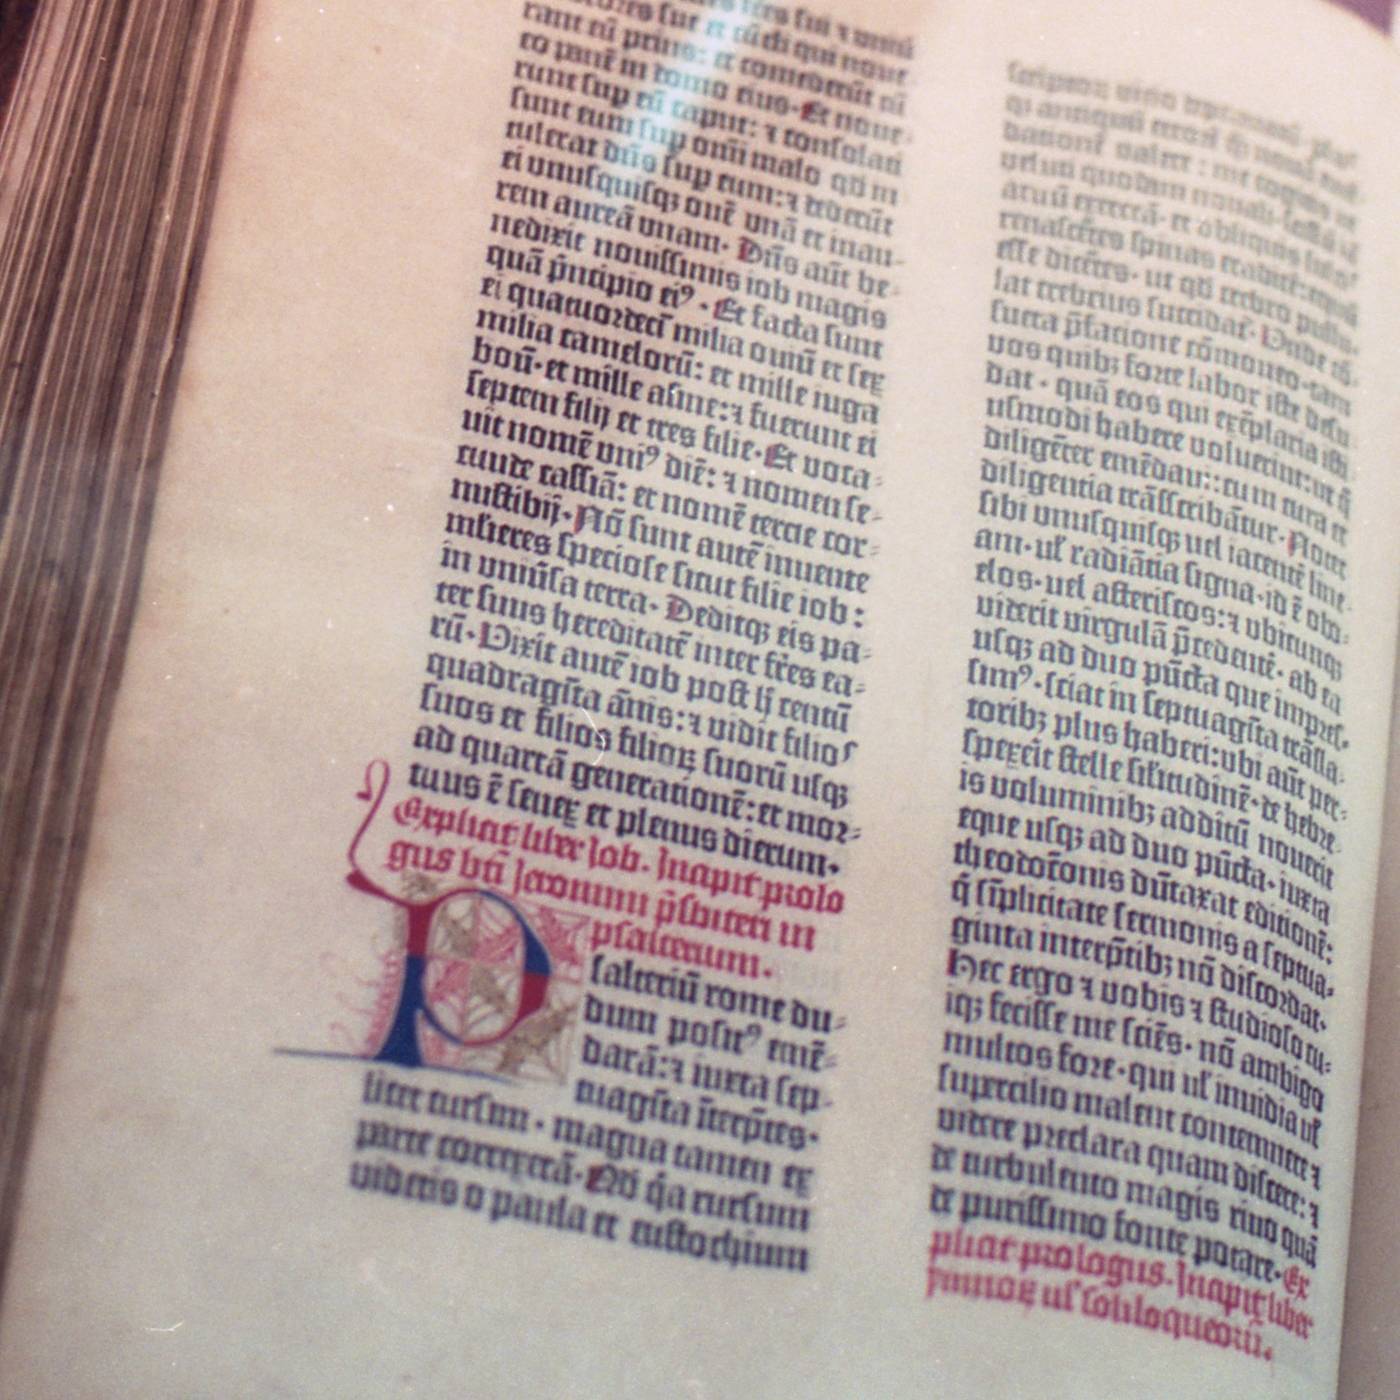 rant eū prius: et comederūt cū
eo panē in domo eius. Et moue-
runt sup eū caput: ⁊ consolati
sunt eum sup omi malo qd in
tulerat dn̄s sup eum: ⁊ dederūt
ei unusquisqꝫ ouē unā et inau-
rem aureā unam. Dn̄s aūt be-
nedixit nouissimis iob magis
quā p̄ncipio eiꝰ. Et facta sunt
ei quatuordecī milia ouiū et sex
milia camelorū: et mille iuga
boū. et mille asine: ⁊ fuerunt ei
septem filij et tres filie. Et voca-
uit nomē uniꝰ diē: ⁊ nomen se-
cunde cassiā: et nomē tercie cor-
nustibij. Nō sunt autē inuente
mlieres speciose sicut filie iob:
in vniūsa terra. Deditqꝫ eis pa-
ter suus hereditatē inter fr̄es ea-
rū. Vixit autē iob post h̄ centū
quadragīta ānis: ⁊ vidit filios
suos et filios filioꝝ suorū usqꝫ
ad quartā generationē: et mor-
tuus ē senex et plenus dierum.
Explicit liber Iob. Incipit prolo
gus bt̄i Jeronimi p̄sbiteri in
psalterium.
Psalteriū rome du-
dum positꝰ emē-
darā: ⁊ iuxta sep-
tuagīta īterp̄tes.
licet cursim. magna tamen ex
parte correxerā. Qd q̇a rursum
videtis o paula et eustochium
scriptoꝝ vitio
dationē valere: me cogitis ut
veluti quodam nouali.
aruū exercerā. et obliquis sulcis
renascētes spinas eradicē:
esse dicētes. ut qd crebro pullu-
lat crebrius succidat̄. Vnde cō-
sueta p̄fatione cōmoneo. tam
vos quibꝫ forte labor iste desu-
dat. quā eos qui exēplaria isti-
usmodi habere voluerint: ut q̄
diligēter emēdaui: cum cura et
diligentia trāscribātur. Notet
sibi unusquisqꝫ uel iacentē line-
am. ul̄ radiātia signa. id ē obo-
elos. uel asteriscos: ⁊ ubicunqꝫ
viderit virgulā p̄cedentē. ab ea
usqꝫ ad duo pūcta que impres-
simꝰ. sciat in septuagīta trāsla-
toribꝫ plus haberi: ubi aūt per-
spexerit stelle sil̄itudinē. de hebre-
is voluminibꝫ additū nouerit
eque usqꝫ ad duo pūcta. iuxta
theodotionis dūtaxat editionē:
q̄ sīplicitate sermonis a septua-
ginta interp̄tibꝫ nō discordat.
Hec ergo ⁊ vobis ⁊ studioso cu-
iqꝫ fecisse me sciēs. nō ambigo
multos fore. qui ul̄ inuidia ul̄
supercilio malent contemnere ⁊
videre preclara quam discere: ⁊
de turbulento magis riuo quā
de purissimo fonte potare. Ex
plicit prologus. Incipit liber
ymnoꝝ ul̄ soliloquiorū.